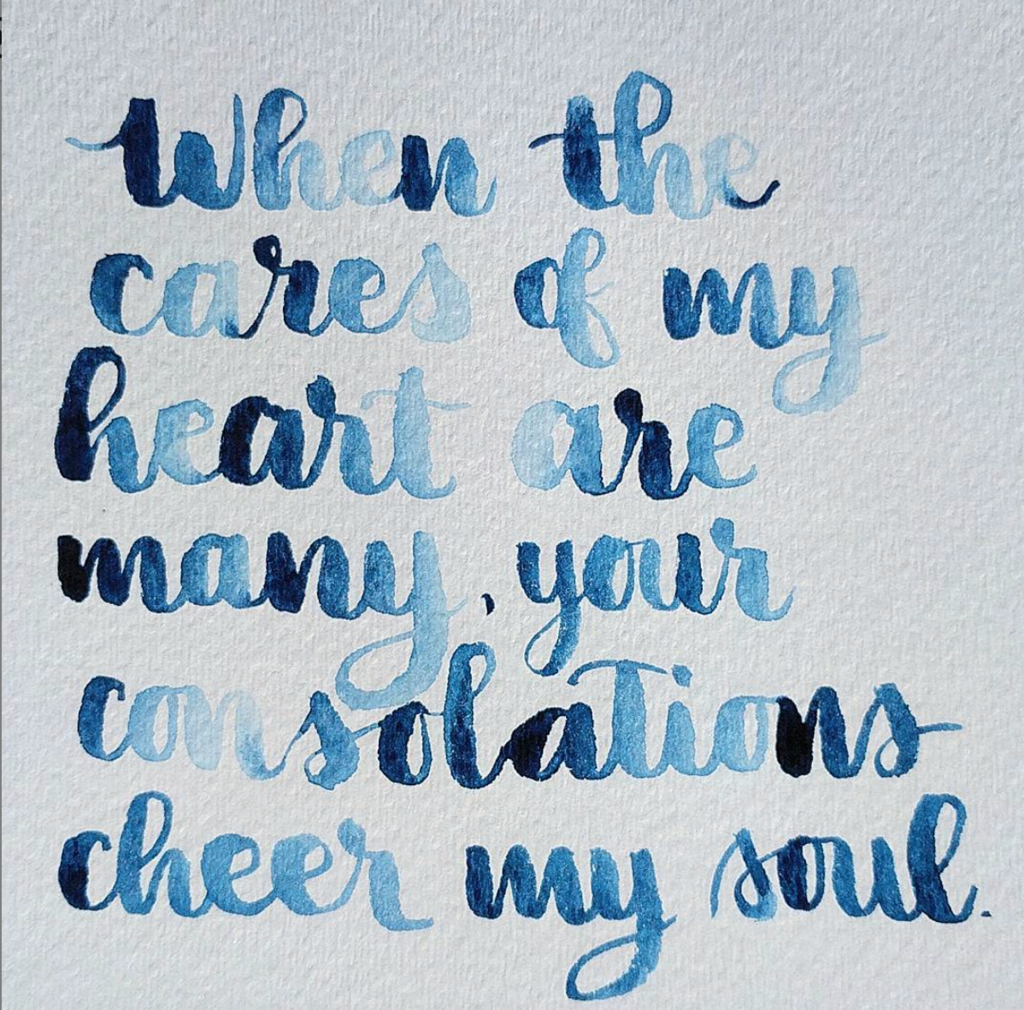 When the
cares of my
heart are
many, your
consolations
cheer my soul.